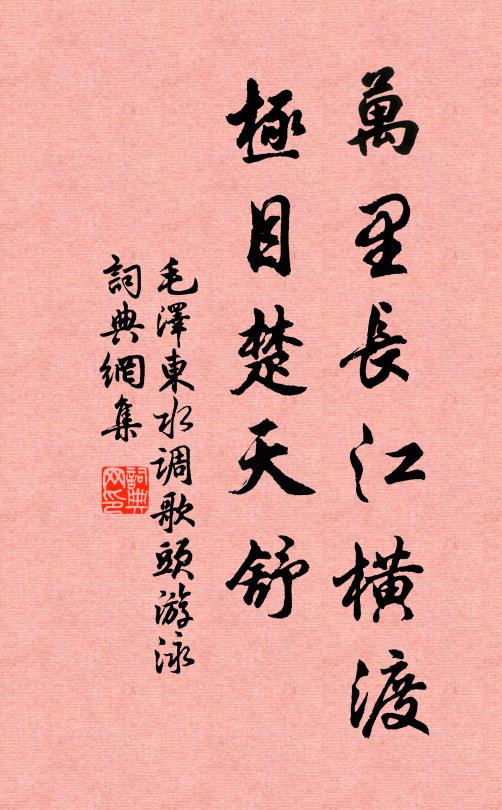 萬里長江橫渡
極目楚天舒
毛澤東水调歌頭游泳
詞典網集
詞典网印